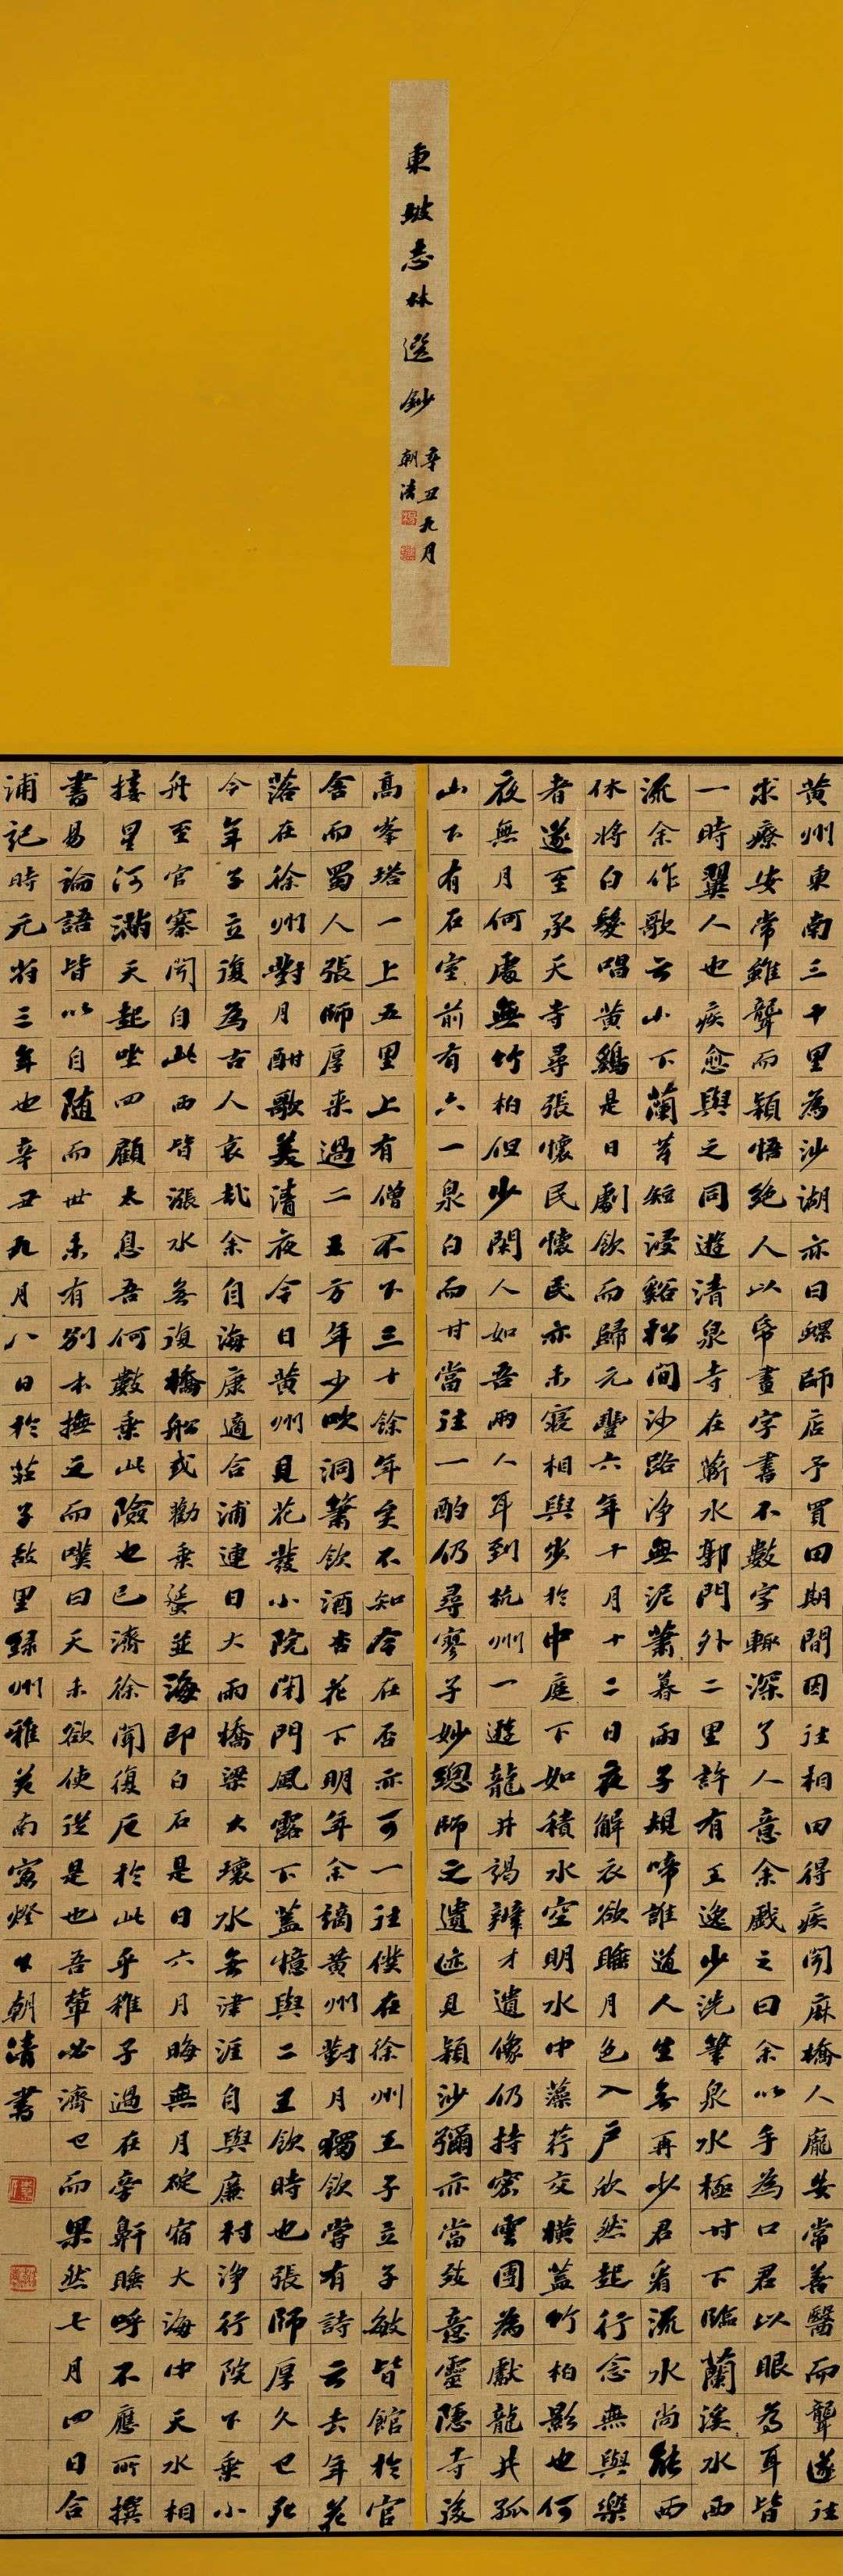 東坡志林選鈔
辛丑九月
朝清
黄州東南三十里為沙湖亦曰螺師店予買田期間因往相田得疾聞麻橋人龐安常善醫而聾遂往
求療安常雖聾而穎悟絕人以帋畫字書不數字輒深了人意余戲之曰余以手為口君以眼為耳皆
一時翼人也疾愈與之同遊清泉寺在蘄水郭門外二里許有王逸少洗筆泉水極甘下臨蘭溪水西
流余作歌云山下蘭芽短浸谿松間沙路淨無泥蕭暮雨子規啼誰道人生無再少君看流水尚能西
休將白髮唱黃鷄是日劇飲而歸元豐六年十月十二日夜解衣欲睡月色入戶欣然起行念無與樂
者遂至承天寺尋張懷民懷民亦未寢相與步於中庭下如積水空明水中藻荇交橫蓋竹柏影也何
夜無月何處無竹柏但少閑人如吾兩人耳到杭州一遊龍井謁辨才遺像仍持密雲團為獻龍井孤
山下有石室前有六一泉白而甘當往一酌仍尋寥子妙總師之遺迹見穎沙彌亦當致意靈隱寺後
高峯塔一上五里上有僧不下三十餘年矣不知今在否亦可一往僕在徐州王子立子敏皆館於官
舍而蜀人張師厚來過二王方年少吹洞簫飲酒杏花下明年余謫黃州對月獨飲嘗有詩云去年花
落在徐州對月酣歌美清夜今日黃州見花發小院閉門風露下蓋憶與二王飲時也張師厚久已死
今年子立復為古人哀哉余自海康適合浦連日大雨橋梁大壞水無津涯自與廉村淨行院下乘小
舟至官寨聞自此西皆漲水無復橋船或勸乘蜑並海即白石是日六月晦無月碇宿大海中天水相
接星河滿天起坐四顧太息吾何數乘此險也已濟徐聞復厄於此乎稚子過在旁鼾睡呼不應所撰
書易論語皆以自隨而世未有別本撫之而嘆曰天未欲使從是也吾輩必濟已而果然七月四日合
浦記時元符三年也辛丑九月八日於莊子故里錄州雅苑南窗燈下朝清書